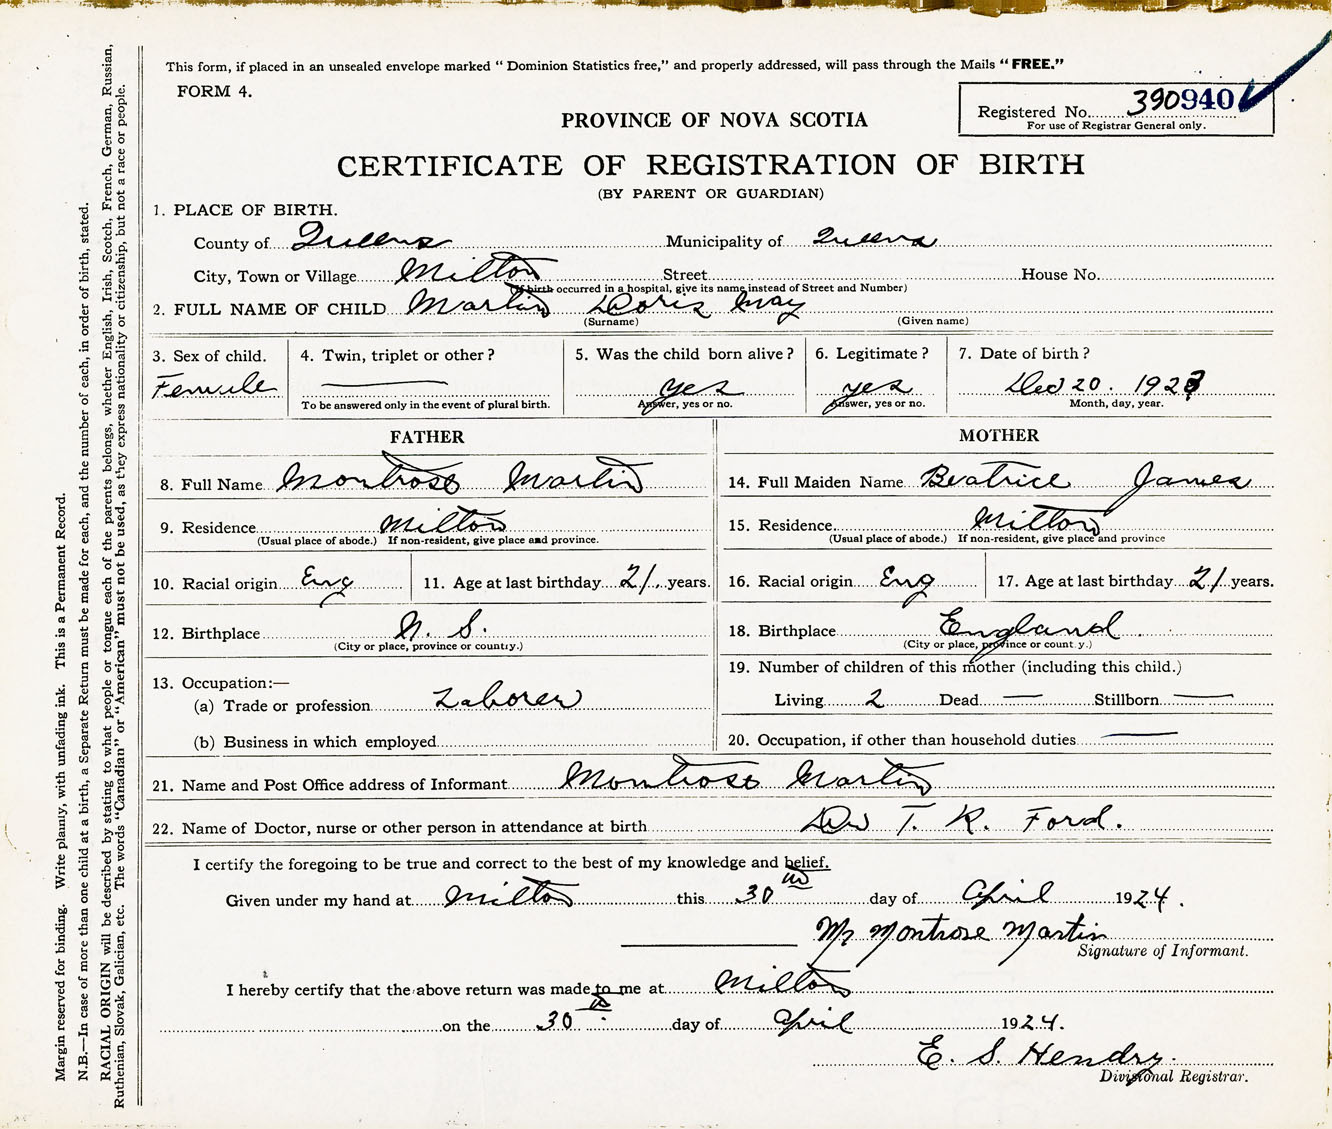 This form, if placed in an unsealed envelope marked "Dominion Statistics free," and properly addressed, will pass through the Mails "FREE."
FORM 4.
Registered No. 390940
For use of Registrar General only.
PROVINCE OF NOVA SCOTIA
CERTIFICATE OF REGISTRATION OF BIRTH
(BY PARENT OR GUARDIAN)
1. PLACE OF BIRTH.
County of Queens Municipality of Queens
City, Town or Village Milton Street House No.
(If birth occurred in a hospital, give its name instead of Street and Number)
2. FULL NAME OF CHILD Martin Doris May
(Surname) (Given name)
3. Sex of child. 4. Twin, triplet or other? 5. Was the child born alive? 6. Legitimate? 7. Date of birth?
Female yes yes Dec 20. 1923
To be answered only in the event of plural birth. Answer, yes or no. Answer, yes or no. Month, day, year.
FATHER MOTHER
8. Full Name Montrose Martin 14. Full Maiden Name Beatrice James
9. Residence Milton 15. Residence Milton
(Usual place of abode.) If non-resident, give place and province. (Usual place of abode.) If non-resident, give place and province
10. Racial origin Eng 11. Age at last birthday 21 years. 16. Racial origin Eng 17. Age at last birthday 21 years.
12. Birthplace N. S. 18. Birthplace England
(City or place, province or country.) (City or place, province or country.)
19. Number of children of this mother (including this child.)
13. Occupation:—
(a) Trade or profession Laborer Living 2 Dead — Stillborn —
(b) Business in which employed 20. Occupation, if other than household duties —
21. Name and Post Office address of Informant Montrose Martin
22. Name of Doctor, nurse or other person in attendance at birth Dr T. R. Ford.
I certify the foregoing to be true and correct to the best of my knowledge and belief.
Given under my hand at Milton this 30 day of April 1924.
Mr Montrose Martin
Signature of Informant.
I hereby certify that the above return was made to me at Milton
on the 30 day of April 1924.
E. S. Hendry.
Divisional Registrar.
Margin reserved for binding. Write plainly, with unfading ink. This is a Permanent Record.
N.B.—In case of more than one child at a birth, a Separate Return must be made for each, and the number of each, in order of birth, stated.
RACIAL ORIGIN will be described by stating to what people or tongue each of the parents belongs, whether English, Irish, Scotch, French, German, Russian,
Ruthenian, Slovak, Galician, etc. The words "Canadian" or "American" must not be used, as they express nationality or citizenship, but not a race or people.